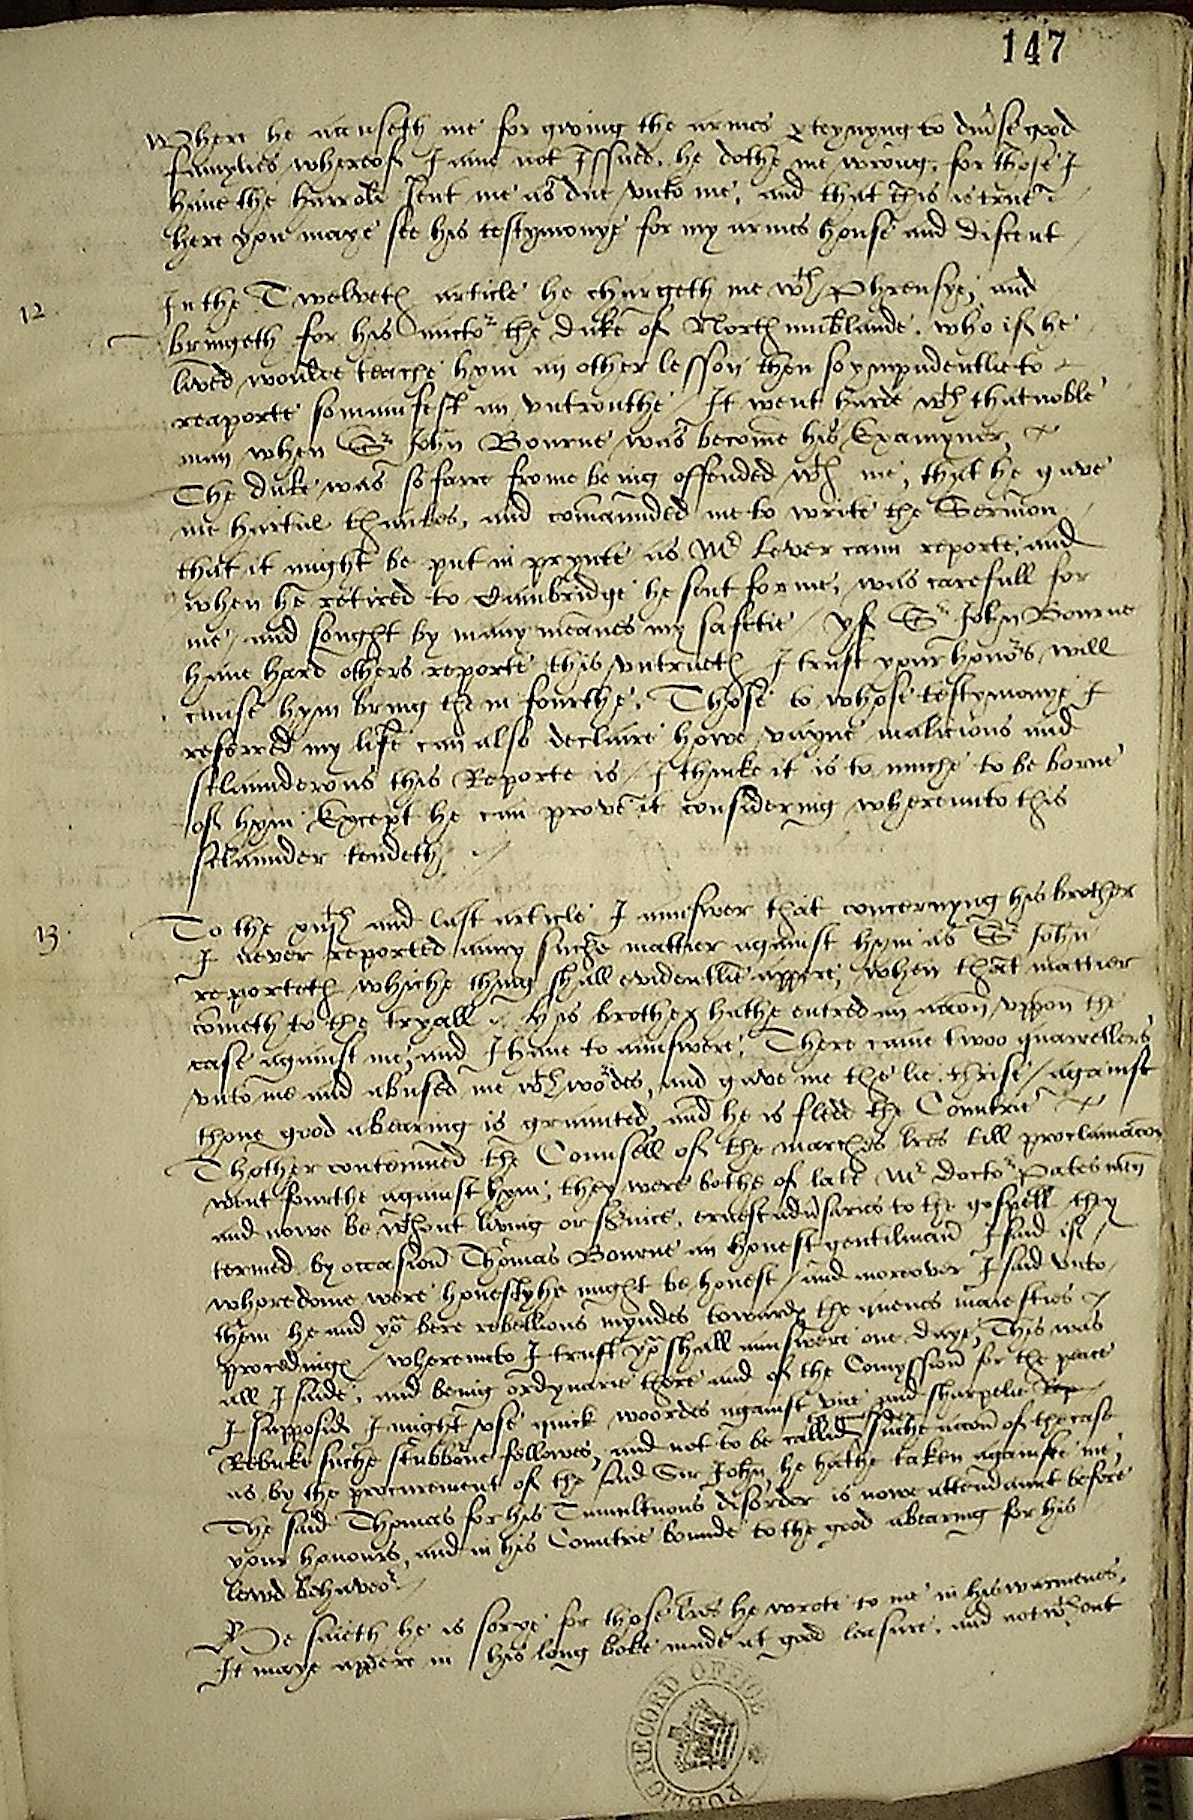 147
Where he accuseth me for giving the armes perteynyng to diuerse good
famylies whereof I ame not Issued. he dothe me wrong, for those I
haue the harrold sent me as due vnto me, and that this is true
here you maye see his testymonye for my armes house and discent
12. In the Twelveth article he chargeth me wth Phrensye, and
bringeth for his auctor the duke of Northumblande. who if he
lived woulde teache hym an other lesson then so ympudentlie to
reaporte so manifest an vntrouthe / It went harde wth that noble
man when Sr John Bourne was become his Examyner,
The duke was so farre frome being offended wth me, that he gave
me hartie thankes, and comaunded me to write the Sermon
that it might be put in prynte as Mr Lever cann reporte, and
when he retired to Cambridge he sent for me, was carefull for
me, and sought by many meanes my safetie / yf Sr John Bourne
haue hard others reporte this vntrueth I trust your honors will
cause hym bring them fourthe. Those to whose testymonye I
referred my life can also declaire howe vayne malicious and
sclaunderous this Reporte is / I thinke it is to muche to be borne
of hym Except he can prove it considering whereunto this
sclaunder tendeth /
13. To the xiijth and last article I aunswer that concernyng his brother
I never reported anny suche mattier against hym as Sr John
reporteth whiche thing shall evidentlie appere, when that mattier
cometh to the tryall. his brother hathe entred an accon vppon the
case against me, and I haue to aunswere. There came twoo quarrellers
vnto me and abused me wth wordes, and gave me the lie thrise / against
thone good abearing is graunted, and he is fledd the Countrie
Thother contemned the Counsell of the marches lres till proclamacon
went fourthe against hym, they were bothe of late Mr doctor Pates men
and nowe be wthout living or seruice. ernest aduersaries to the gospell they
termed by occasion Thomas Bourne an honest gentilman I said if
whoredome were honesty he might be honest / and moreover I said vnto
them he and yo bere rebellious myndes towards the quenes maiesties
procedings / whereunto I trust yo shall aunswere one daye, This was
all I saide, and being ordynarie there and of the Comyssion for the peace
I supposid I might vse quick woordes against vice and sharpelie Rep
Rebuke suche stubborne fellowes, and not to be callid suche accon of the case
as by the procurement of the said Sir John, he hathe taken against me,
The said Thomas for his Tumultuous disorder is nowe attendaunt before
your honours, and in his Countrie bounde to the good abearing for his
lewd behaveor /
He saieth he is sorye for those lres he wrote to me in his warmenes.
It maye appere in his long boke made at good leasure, and not wthout
PUBLIC RECORD OFFICE